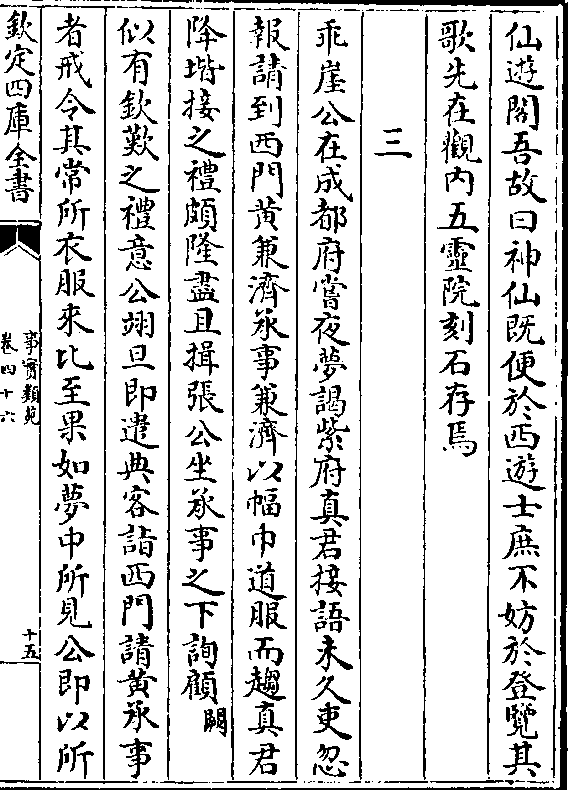 仙遊閣吾故曰神仙既便於西遊士庶不妨於登覽其
歌先在觀内五靈院刻石存焉
三
乖崖公在成都府嘗夜夢謁紫府真君接語未久吏忽
報請到西門黄兼濟承事兼濟以幅巾道服而趨真君
降堦接之禮頗隆盡且揖張公坐承事之下詢顧闕
似有欽歎之禮意公翊旦即遣典客詣西門請黄承事
者戒令其常所衣服來比至果如夢中所見公即以所
欽定四庫全書
事實類苑
卷四十六
十五